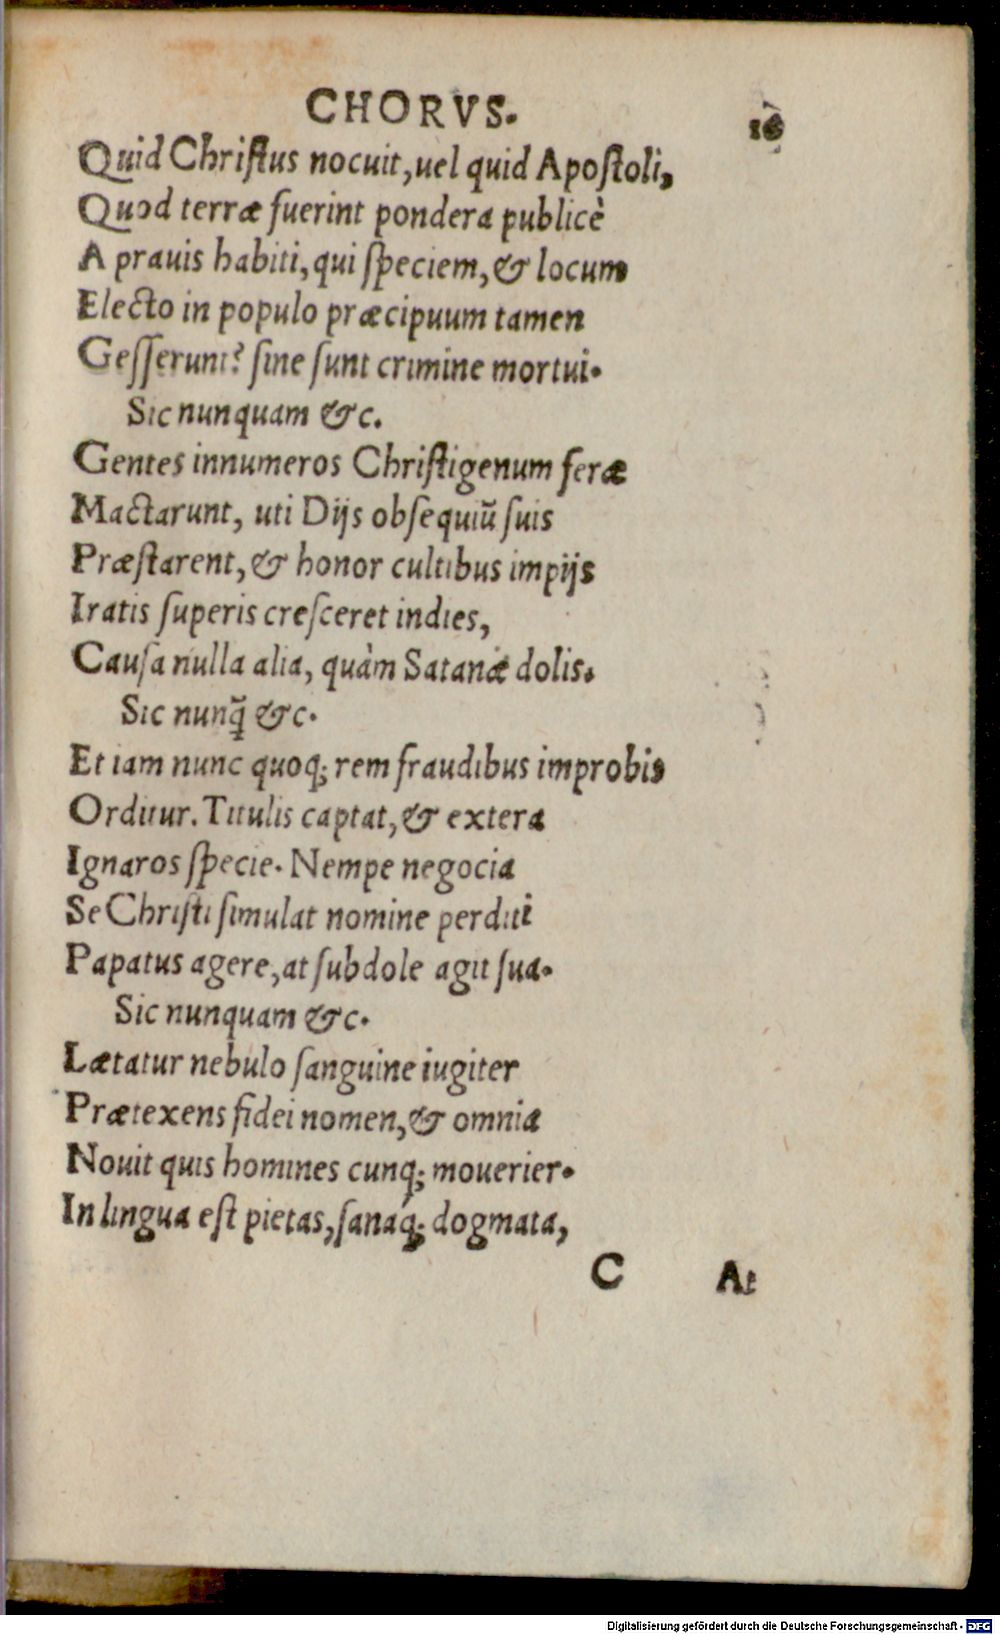 CHORVS.
Quid Chriſtus nocuit, uel quid Apoſtoli,
Quod terræ fuerint pondera publicè
A prauis habiti, qui ſpeciem, & locum
Electo in populo præcipuum tamen
Geſſerunt? ſine ſunt crimine mortui.
Sic nunquam &c.
Gentes innumeros Chriſtigenum feræ
Mactarunt, uti Dijs obſequiũ ſuis
Præſtarent, & honor cultibus impijs
Iratis ſuperis creſceret indies,
Cauſa nulla alia, quàm Satanæ dolis.
Sic nunq̃ &c.
Et iam nunc quoq; rem fraudibus improbis
Orditur. Titulis captat, & extera
Ignaros ſpecie. Nempe negocia
Se Chriſti ſimulat nomine perditi
Papatus agere, at ſubdole agit ſua.
Sic nunquam &c.
Lætatur nebulo ſanguine iugiter
Prætexens fidei nomen, & omnia
Nouit quis homines cunq; mouerier.
In lingua eſt pietas, ſanaq́; dogmata,
C At
Digitalisierung gefördert durch die Deutsche Forschungsgemeinschaft - DFG